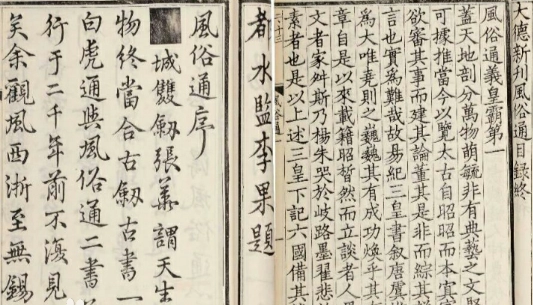 大德新刊風俗通目録終
風俗通義皇霸第一
蓋天地剖分萬物萌毓非有典藝之文
可據推當今以覽太古自昭昭而本
欲審其事而建其論董其是非而綜其
言也實爲難哉故易紀三皇書叙唐虞
爲大唯堯則之巍巍其有成功煥乎其
章自是以來載籍昭晳然而立談者人
文者家舛斯乃楊朱哭於岐路墨翟悲
素者也是以上述三皇下記六國備其
風俗通
都水監李果題
風俗通序
城雙劒張華謂天生
物終當合古劒古書一
白虎通與風俗通二書
行于二千年前不復見
矣余觀風西浙至無錫